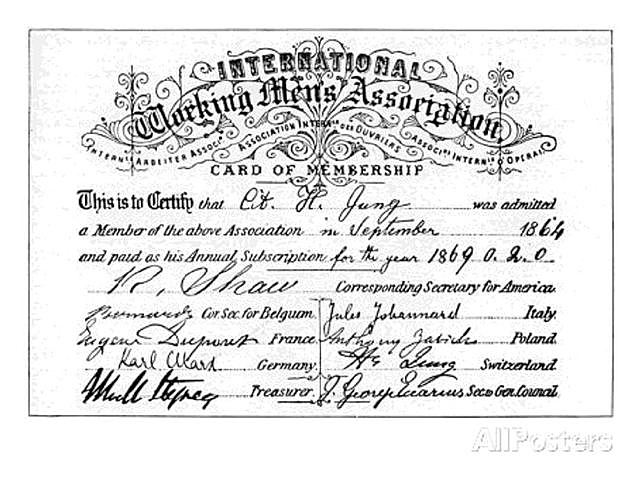 INTERNATIONAL
Working Men's Association
INTERN'E ARBEITER ASSOC'N ASSOCIATION INTERN'LE DES OUVRIERS ASSOC'E INTERN'LE D'OPERAI
CARD OF MEMBERSHIP
This is to Certify that Cit. H. Jung was admitted
a Member of the above Association in September 1864
and paid as his Annual Subscription for the year 1869 0.2.0
R. Shaw Corresponding Secretary for America.
Bernard Cor. Sec. for Belgium. Jules Johannard Italy.
Eugène Dupont France. Anthony Zabicki Poland.
Karl Marx Germany. H. Jung Switzerland.
Treasurer. J. George Eccarius Sec. to Gen. Council.
AllPosters